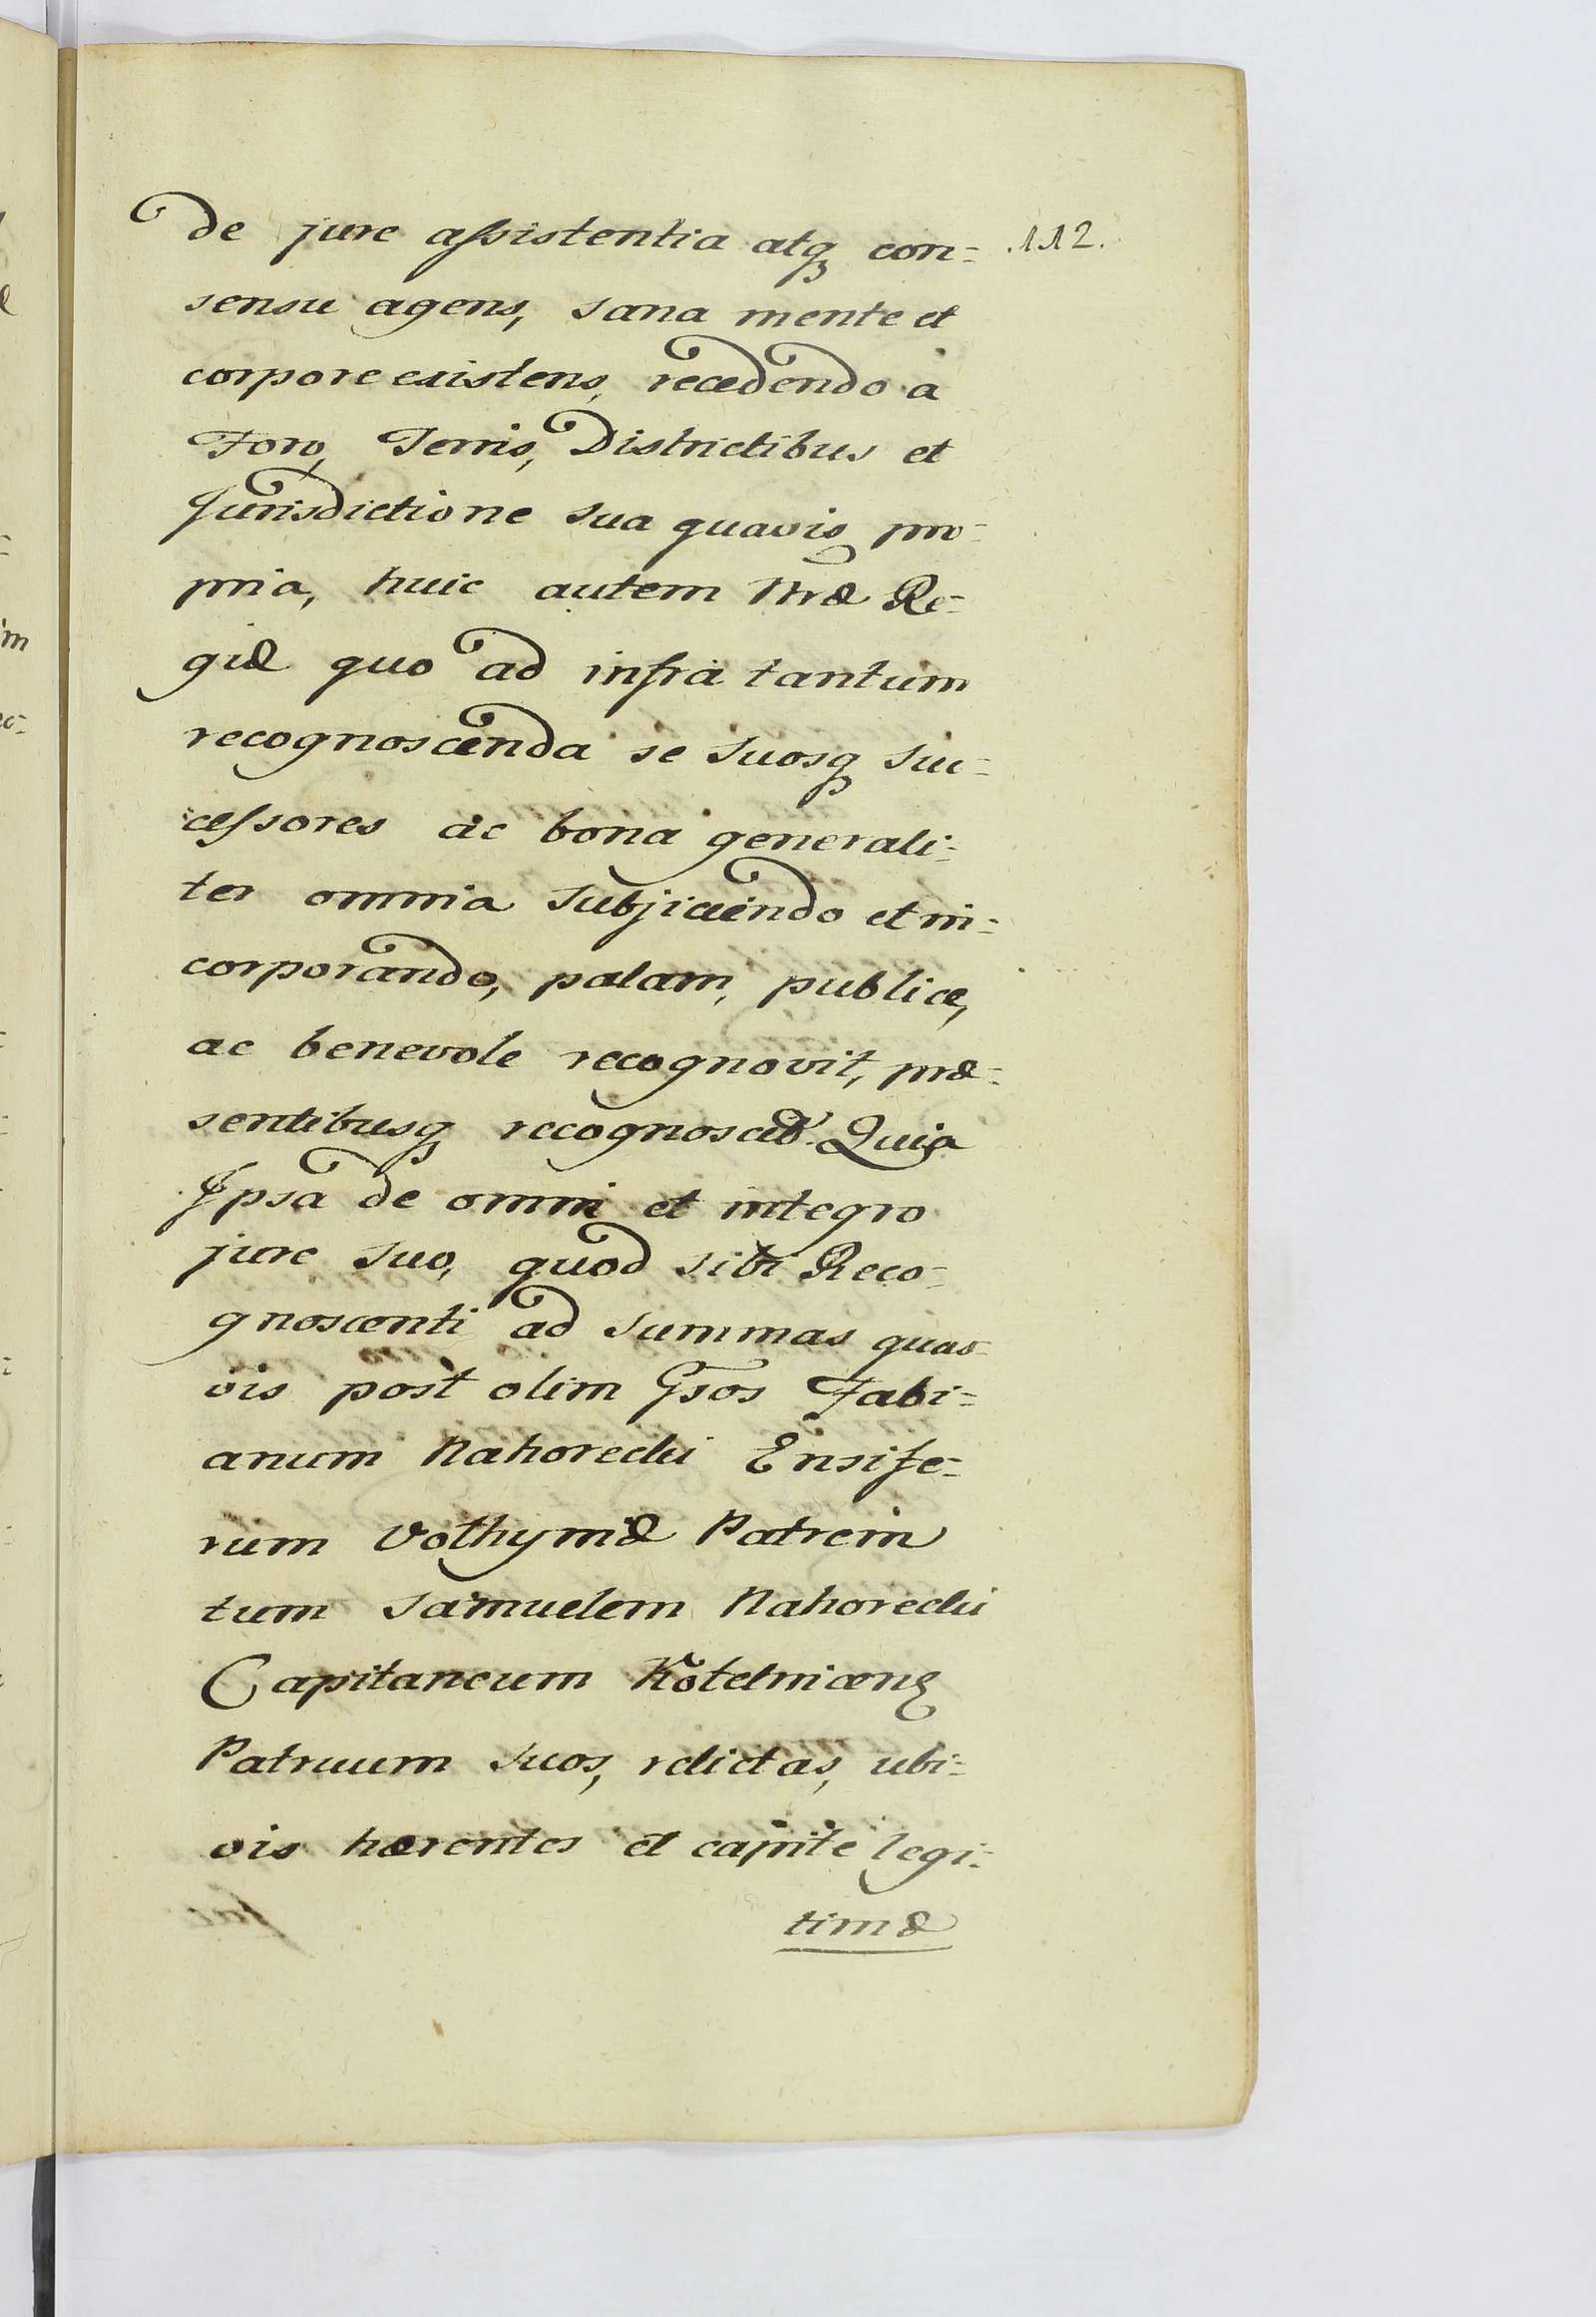 De jure assistentia atq con= .112.
sensu agens, sana mente et
corpore existens, recedendo a
Foro, Terris, Districtibus et
Jurisdictione sua quavis pro=
pria, huic autem Mtræ Re=
giæ quo ad infra tantum
recognoscenda se suosq suc=
cessores ac bona generali=
ter omnia subjiciendo et in=
corporando, palam, publice,
ac benevole recognovit, præ=
sentibusq recognoscit. Quia
Ipsa de omni et integro
jure suo, quod sibi Reco=
gnoscenti ad summas quas
vis post olim Gsos Fabi=
anum Nahorecki Ensife=
rum Vothyniæ Patrem
tum Samuelem Nahorecki
Capitaneum Kotelnicens
Patruum suos, relictas, ubi=
vis hærentes et capite legi=
timæ